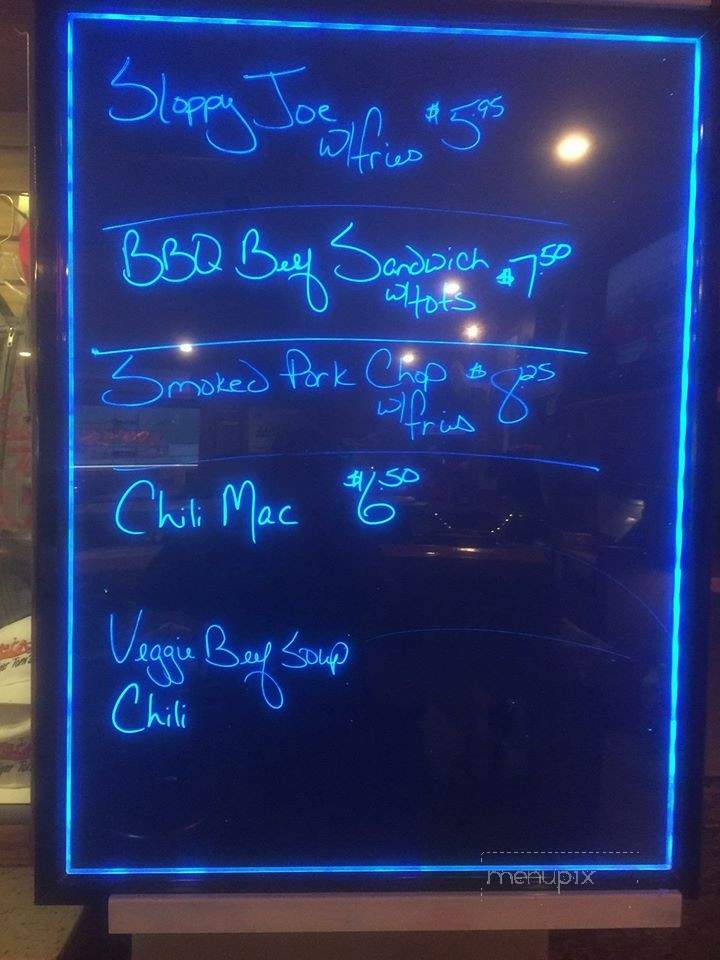 Sloppy Joe $5.95
w/fries
BBQ Beef Sandwich $7.50
w/tots
Smoked Pork Chop $8.25
w/fries
Chili Mac $6.50
Veggie Beef Soup
Chili
menupix